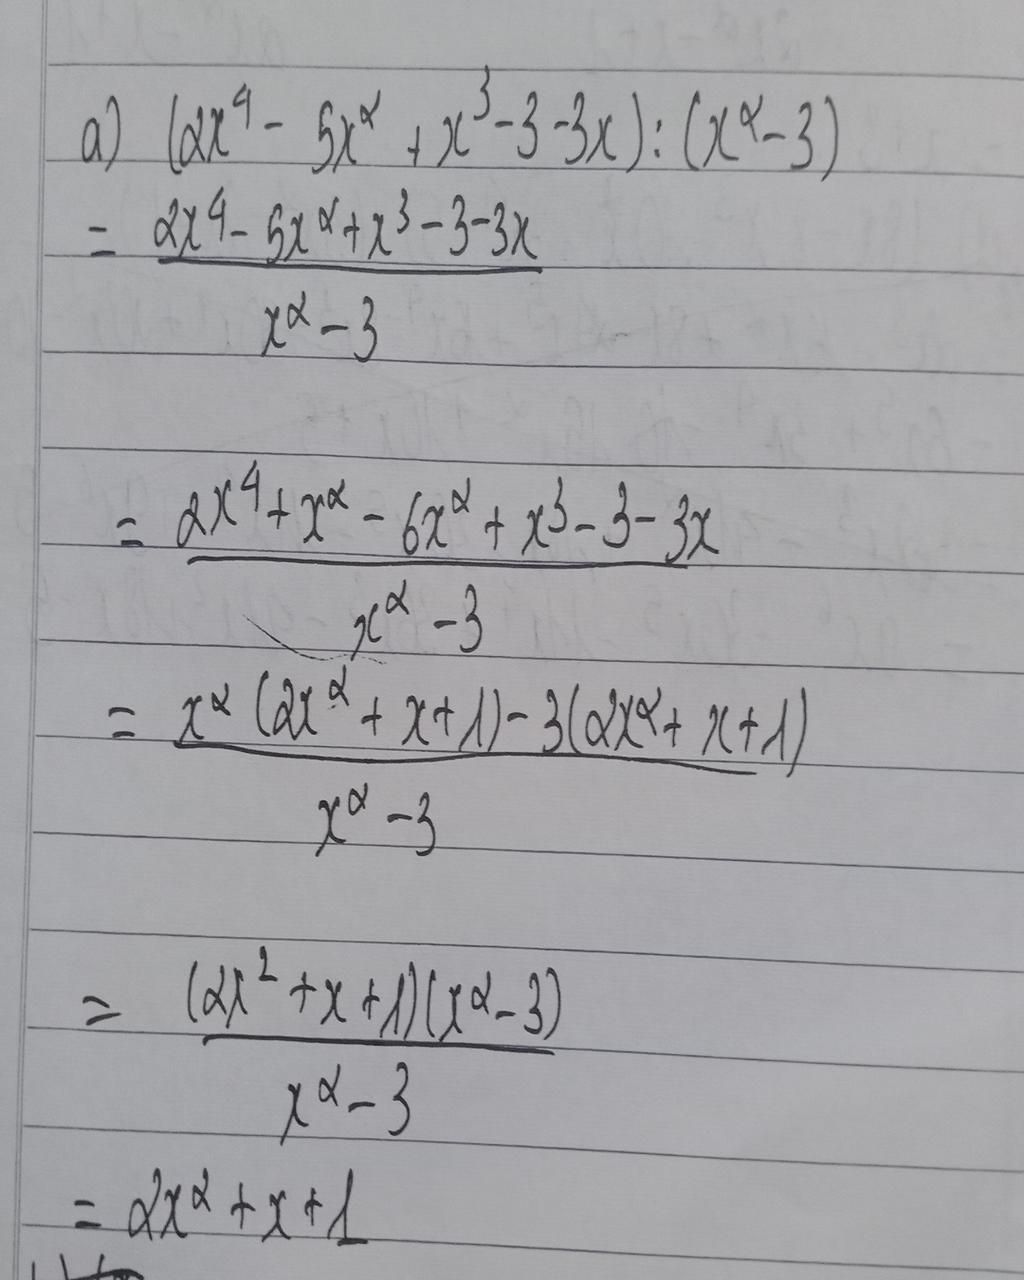 a) (2x⁴ - 5x² + x³ - 3 - 3x) : (x² - 3)
= 2x⁴ - 5x² + x³ - 3 - 3x
x² - 3
= 2x⁴ + x² - 6x² + x³ - 3 - 3x
x² - 3
= x² (2x² + x + 1) - 3(2x² + x + 1)
x² - 3
= (2x² + x + 1)(x² - 3)
x² - 3
= 2x² + x + 1